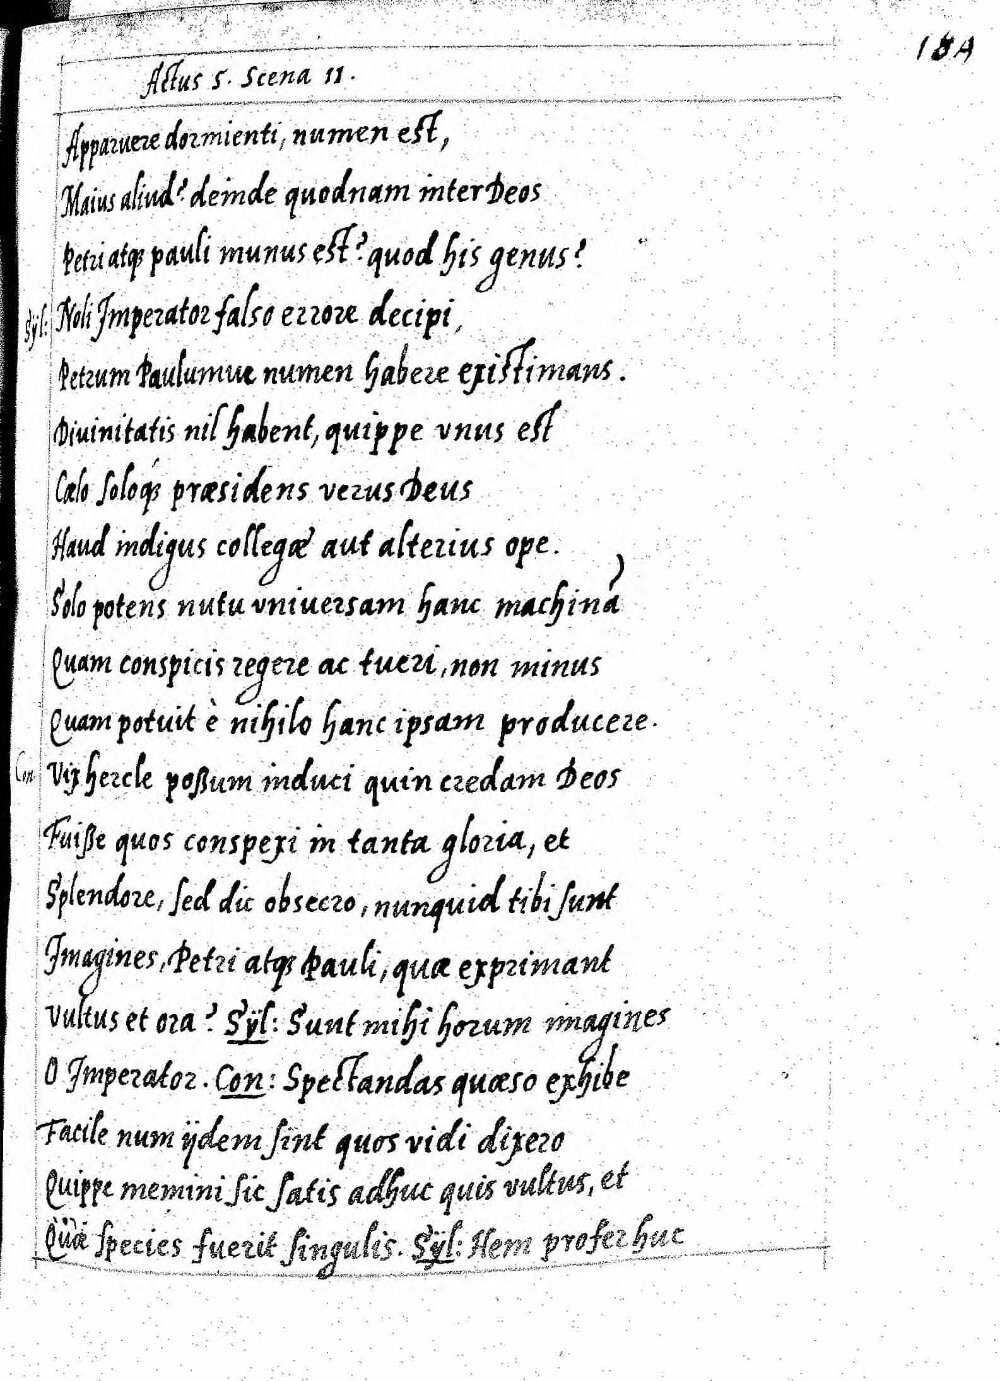 184
Actus 5. Scena 11.
Apparuere dormienti, numen est,
Maius aliud? deinde quodnam inter Deos
Petri atqȝ pauli munus est? quod his genus?
Sÿl: Noli Imperator falso errore decipi,
Petrum Paulumue numen habere existimans.
Diuinitatis nil habent, quippe vnus est
Cælo soloqȝ præsidens verus Deus
Haud indigus collegæ aut alterius ope.
Solo potens nutu vniuersam hanc machinā
Quam conspicis regere ac tueri, non minus
Quam potuit è nihilo hanc ipsam producere.
Con Vix hercle poßum induci quin credam Deos
Fuiße quos conspexi in tanta gloria, et
Splendore, sed dic obsecro, nunquid tibi sunt
Imagines, Petri atqȝ Pauli, quæ exprimant
Vultus et ora? Sÿl: Sunt mihi horum imagines
O Imperator. Con: Spectandas quæso exhibe
Facile num ijdem sint quos vidi dixero
Quippe memini sic satis adhuc quis vultus, et
Quæ species fuerit singulis. Sÿl: Hem profer huc